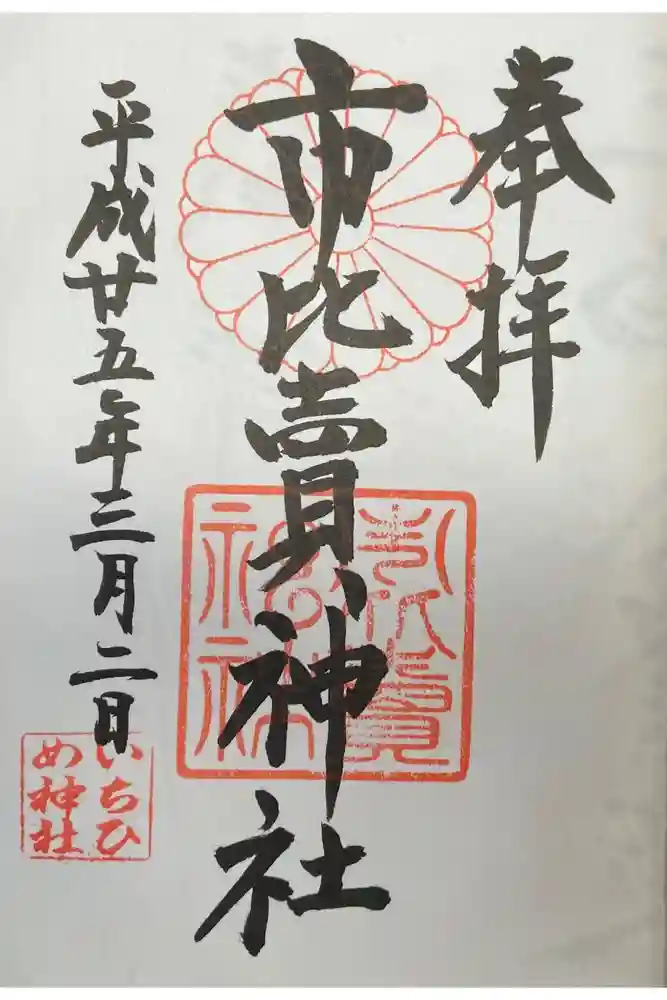 奉拝
市比賣神社
平成廿五年三月二日
いちひ
め神社